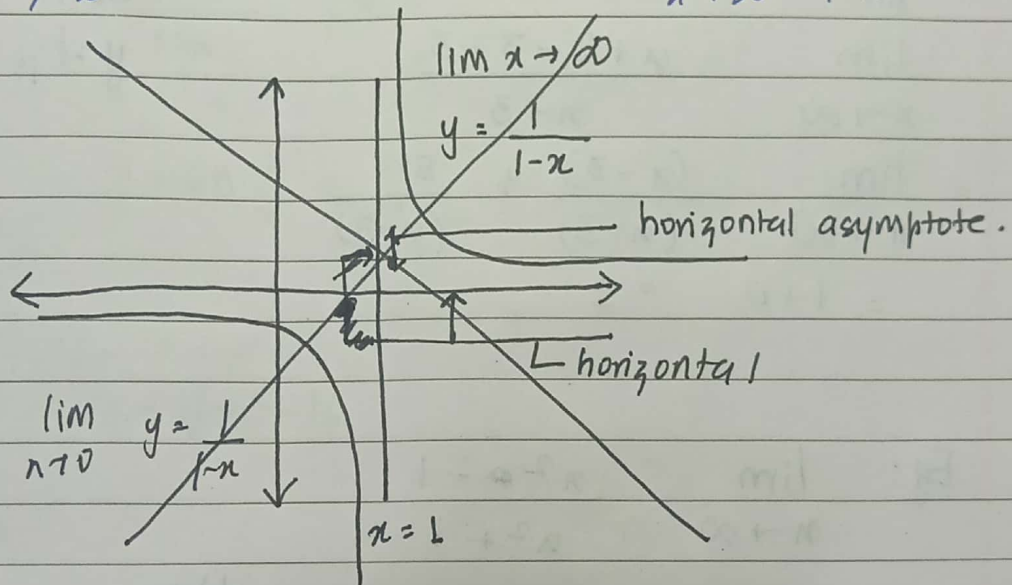 lim x → ∞
y = 1/(1-x)
horizontal asymptote.
horizontal
lim
n→0
y = 1/(1-x)
x = 1